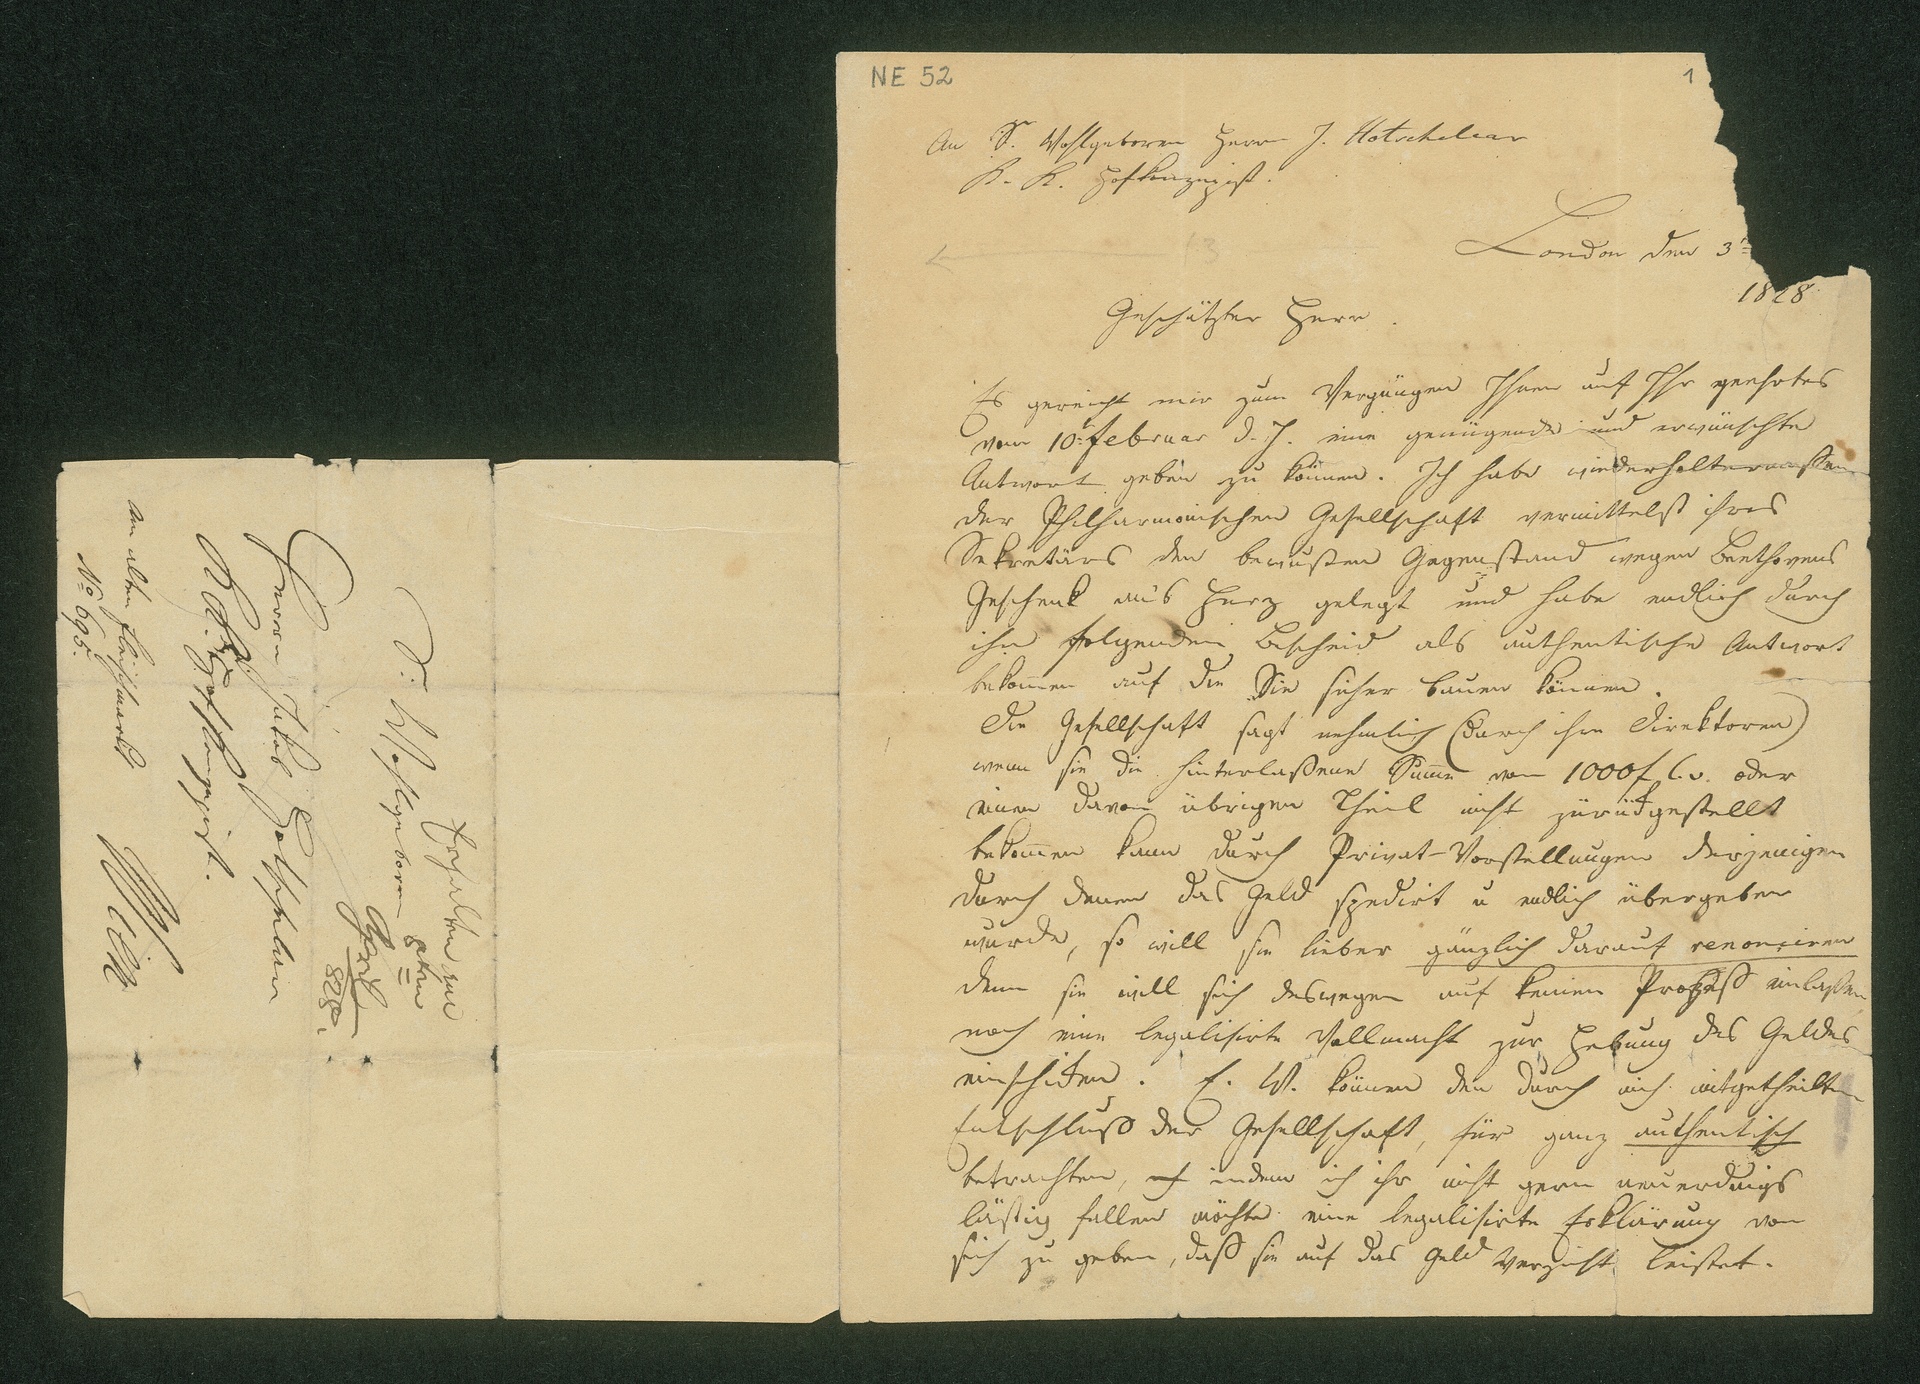 NE 52
1
An Sr. Wohlgeboren Herrn J. Hotschevar
K. K. Hofkonzipist.
London den 3t
1828
Geschätzter Herr.
Es gereicht mir zum Vergnügen Ihnen auf Ihr geehrtes
vom 10t. Februar d. J. eine genügende und erwünschte
Antwort geben zu können. Ich habe wiederholtermassen
der Philharmonischen Gesellschaft vermittelst ihres
Sekretärs den bewußten Gegenstand wegen Beethovens
Geschenk ans Herz gelegt und habe endlich durch
ihn folgenden Bescheid als authentische Antwort
bekommen auf die Sie sicher bauen können.
Die Gesellschaft sagt nehmlich (durch ihre Direktoren)
wenn sie die hinterlaßene Summe von 1000f C. oder
einen davon übrigen Theil nicht zurückgestellt
bekommen kann durch Privat-Vorstellungen derjenigen
durch denen das Geld spedirt u endlich übergeben
wurde, so will sie lieber gänzlich darauf renonciren
denn sie will sich deswegen auf keinen Prozess einlaßen
noch eine legalisirte Vollmacht zur Hebung des Geldes
einschicken. E. W. können den durch mich mitgetheilten
Entschluß der Gesellschaft, für ganz authentisch
betrachten, indem ich ihr nicht gern neuerdings
lästig fallen möchte eine legalisirte Erklärung von
sich zu geben, daß sie auf das Geld Verzicht leistet.
Wohlgeboren
Herrn Jakob Hotschevar
K. K. Hofkonzipist.
am alten Fleischmarkt
No 695.
Wien
Erhalten am
April
828.